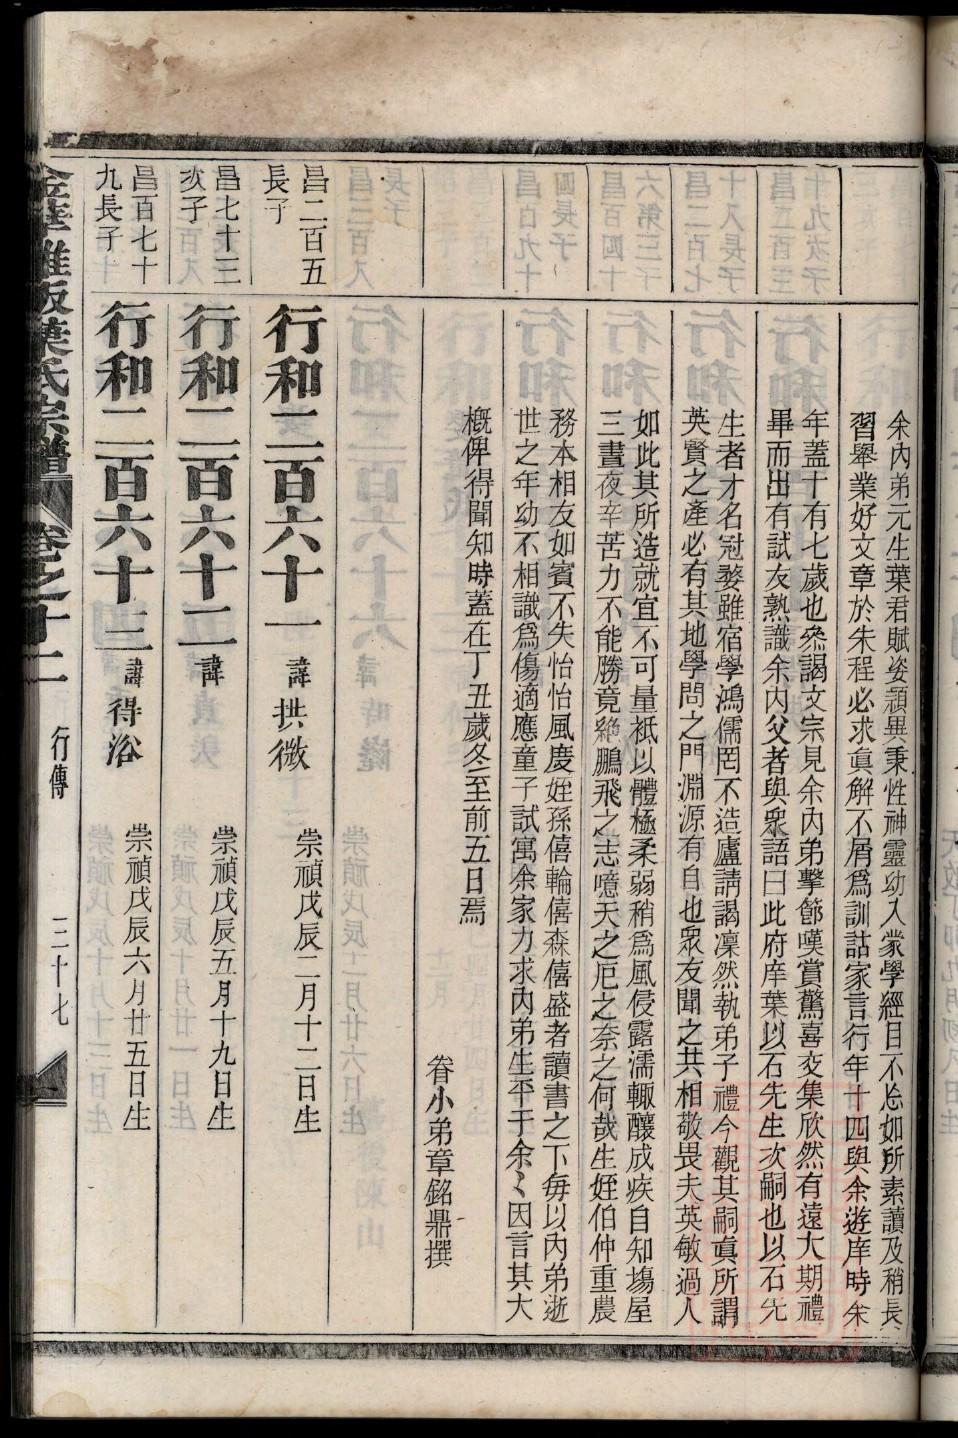 余內弟元生葉君賦姿頴異秉性神靈幼入蒙學經目不忘如所素讀及稍長
習舉業好文章於朱程必求眞解不屑爲訓詁家言行年十四與余遊庠時年
年蓋十有七歲也叅謁文宗見余內弟擊節嘆賞驚喜交集欣然有遠大期禮
畢而出有試友熟識余內父者與衆語曰此府庠葉以石先生次嗣也以石先
生者才名冠婺雖宿學鴻儒罔不造廬請謁凜然執弟子禮今觀其嗣眞所謂
英賢之產必有其地學問之門淵源有自也衆友聞之共相敬畏夫英敏過人
如此其所造就宜不可量祗以體極柔弱稍爲風侵露濡輙釀成疾自知塲屋
三晝夜辛苦力不能勝竟絕鵬飛之志噫天之厄之奈之何哉生姪伯仲重農
務本相友如賓不失怡怡風慶姪孫僖輪僖森僖盛者讀書之下每以內弟逝
世之年幼不相識爲傷適應童子試寓余家力求內弟生平于余〻因言其大
槪俾得聞知時蓋在丁丑歲冬至前五日焉
眷小弟章銘鼎撰
昌二百五
長子
行和二百六十一 諱拱微 崇禎戊辰二月十二日生
昌七十三
次子
行和二百六十二 諱 崇禎戊辰五月十九日生
昌百七十
九長子
行和二百六十三 諱得浴 崇禎戊辰六月廿五日生
葉氏宗譜 卷之十二 行傳 三十七